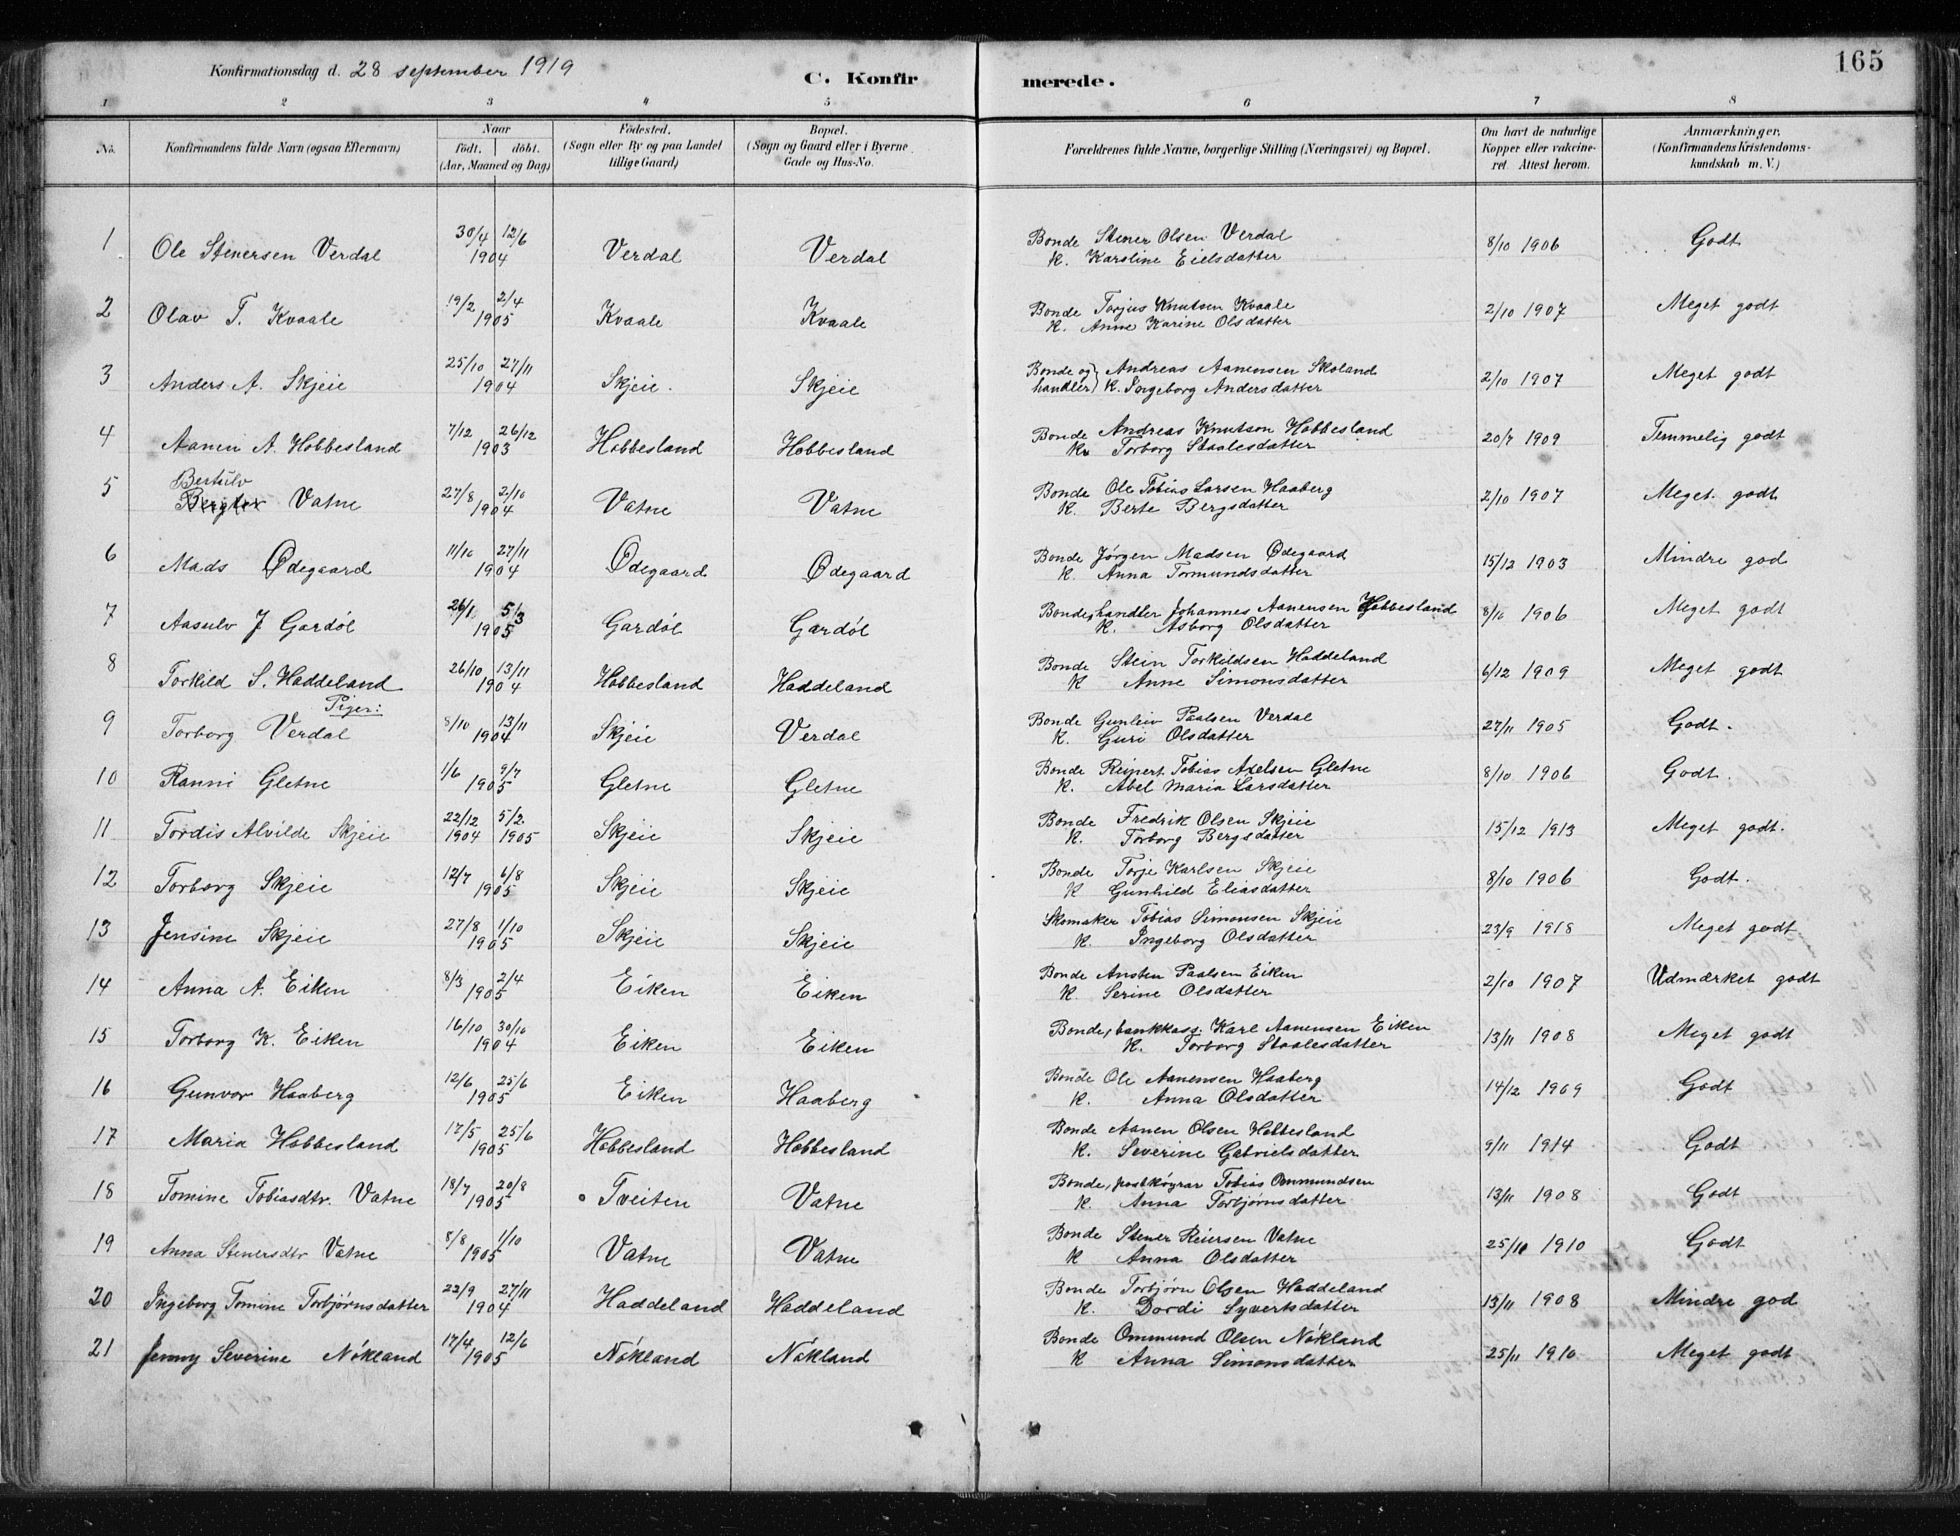 165
Konfirmationsdag d. 28 september 1919
C. Konfirmerede.
1 2 3 4 5 6 7 8
No. Konfirmandens fulde Navn (ogsaa Efternavn) Naar födt. döbt. (Aar, Maaned og Dag) Födested. (Sogn eller By og paa Landet tillige Gaard) Bopæl. (Sogn og Gaard eller i Byerne Gade og Hus-No. Forældrenes fulde Navne, borgerlige Stilling (Næringsvei) og Bopæl. Om havt de naturlige Kopper eller vakcineret. Attest herom. Anmærkninger. (Konfirmandens Kristendomskundskab m. V.)
1 Ole Stenersen Verdal 30/4 12/6 1904 Verdal Verdal Bonde Stener Olsen Verdal K. Karoline Eielsdatter 8/10 1906 Godt
2 Olav T. Kvaale 19/2 2/4 1905 Kvaale Kvaale Bonde Torjus Knutsen Kvaale K. Anne Karine Olsdatter 2/10 1907 Meget godt
3 Anders A. Skjeie 25/10 27/11 1904 Skjeie. Skjeie Bonde og handler} Andreas Aanensen Skoland K. Ingeborg Andersdatter 2/10 1907 Meget godt
4 Aanen A. Hobbesland 7/12 26/12 1903 Hobbesland Hobbesland Bonde Andreas Knutson Hobbesland K. Torborg Staalesdatter 20/7 1909 Temmelig godt
5 Bertulv Bergtor Vatne 27/8 2/10 1904 Vatne Vatne Bonde Ole Tobias Larsen Haaberg K. Berte Bergsdatter 2/10 1907 Meget godt
6 Mads Ødegaard 11/10 27/11 1904 Ødegaard Ødegaard Bonde Jørgen Madsen Ødegaard K. Anna Tormundsdatter 15/12 1903 Mindre god
7 Aasulv J Gardøl 26/1 5/3 1905 Gardøl Gardøl Bonde, handler Johannes Aanensen Hobbesland K. Asborg Olsdatter 8/10 1906 Meget godt
8 Torkild S. Haddeland 26/10 13/11 1904 Hobbesland Haddeland Bonde Stein Torkildsen Haddeland K Anne Simonsdatter 6/12 1909 Meget godt
Piger:
9 Torborg Verdal 8/10 13/11 1904 Skjeie Verdal Bonde Gunleiv Paalsen Verdal K. Guri Olsdatter 27/11 1905 Godt.
10 Ranni Gletne 1/6 9/7 1905 Gletne Gletne Bonde Reinert Tobias Axelsen Gletne K. Abel Maria Larsdatter 8/10 1906 Godt.
11 Tordis Alvilde Skjeie 22/12 1904 5/2 1905 Skjeie Skjeie Bonde Fredrik Olsen Skjeie K. Torborg Bergsdatter 15/12 1913 Meget godt.
12 Torborg Skjeie 12/7 6/8 1905 Skjeie Skjeie Bonde Torje Karlsen Skjeie K Gunhild Eliasdatter 8/10 1906 Godt.
13 Jensine Skjeie 27/8 1/10 1905 Skjeie Skjeie Skomaker Tobias Simonsen Skjeie K. Ingeborg Olsdatter 23/9 1918 Meget godt
14 Anna A. Eiken 8/3 2/4 1905 Eiken Eiken Bonde Ansten Paalsen Eiken K. Serine Olsdatter 2/10 1907 Udmærket godt
15 Torborg K. Eiken 16/10 30/10 1904 Eiken Eiken Bonde, bankkass. Karl Aanensen Eiken K. Torborg Staalesdatter 13/11 1908 Meget godt
16 Gunvor Haaberg 12/6 25/6 1905 Eiken Haaberg Bonde Ole Aanensen Haaberg K. Anna Olsdatter 14/12 1909 Godt
17 Maria Hobbesland 17/5 25/6 1905 Hobbesland Hobbesland Bonde Aanen Olsen Hobbesland K. Severine Gabrielsdatter 9/11 1914 Godt
18 Tomine Tobiasdtr. Vatne 18/7 20/8 1905 Tveiten Vatne Bonde, postkøyrar Tobias Ommundsen K. Anna Torbjørnsdatter 13/11 1908 Godt
19 Anna Stenersdtr Vatne 8/8 1/10 1905 Vatne Vatne Bonde Stener Reiersen Vatne K Anna Olsdatter 25/11 1910 Godt
20 Ingeborg Tomine Torbjørnsdatter 22/9 27/11 1904 Haddeland Haddeland Bonde Torbjørn Olsen Haddeland K. Dordi Syvertsdatter 13/11 1908 Mindre god
21 Jenny Severine Nökland 17/4 12/6 1905 Nökland Nökland Bonde Ommund Olsen Nökland K Anna Simonsdatter 25/11 1910 Meget godt